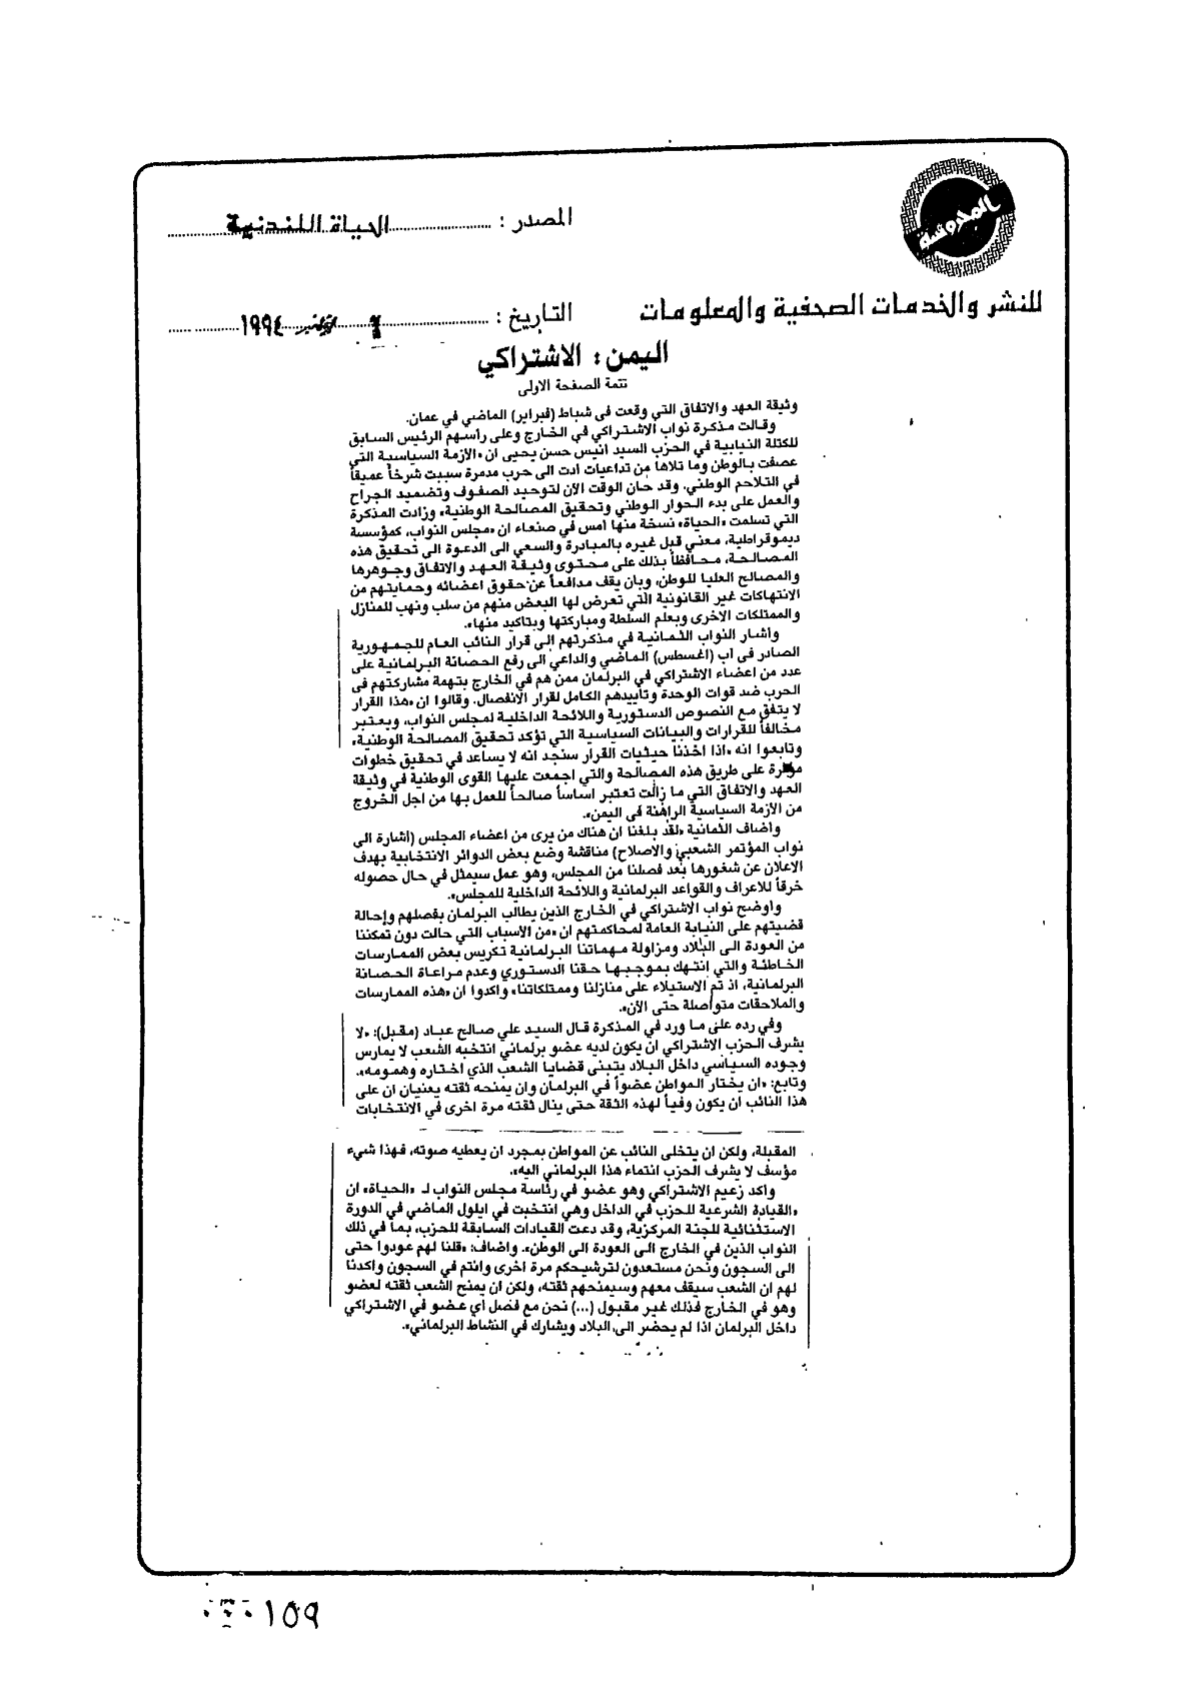 المحروسة
المصدر : الحياة اللندنية
للنشر والخدمات الصحفية والمعلومات
التاريخ : ١٩٩٤
اليمن : الاشتراكي
تتمة الصفحة الاولى
وثيقة العهد والاتفاق التي وقعت في شباط (فبراير) الماضي في عمان.
وقالت مذكرة نواب الاشتراكي في الخارج وعلى رأسهم الرئيس السابق
للكتلة النيابية في الحزب السيد انيس حسن يحيى ان «الازمة السياسية التي
عصفت بالوطن وما تلاها من تداعيات ادت الى حرب مدمرة سببت شرخاً عميقاً
في التلاحم الوطني. وقد حان الوقت الآن لتوحيد الصفوف وتضميد الجراح
والعمل على بدء الحوار الوطني وتحقيق المصالحة الوطنية» وزادت المذكرة
التي تسلمت «الحياة» نسخة منها امس في صنعاء ان «مجلس النواب، كمؤسسة
ديموقراطية، معني قبل غيره بالمبادرة والسعي الى الدعوة الى تحقيق هذه
المصالحة، محافظاً بذلك على محتوى وثيقة العهد والاتفاق وجوهرها
والمصالح العليا للوطن، وبان يقف مدافعاً عن حقوق اعضائه وحمايتهم من
الانتهاكات غير القانونية التي تعرض لها البعض منهم من سلب ونهب للمنازل
والممتلكات الاخرى وبعلم السلطة ومباركتها وبتاكيد منها».
واشار النواب الثمانية في مذكرتهم إلى قرار النائب العام للجمهورية
الصادر في آب (اغسطس) الماضي والداعي الى رفع الحصانة البرلمانية على
عدد من اعضاء الاشتراكي في البرلمان ممن هم في الخارج بتهمة مشاركتهم في
الحرب ضد قوات الوحدة وتأييدهم الكامل لقرار الانفصال. وقالوا ان «هذا القرار
لا يتفق مع النصوص الدستورية واللائحة الداخلية لمجلس النواب، ويعتبر
مخالفاً للقرارات والبيانات السياسية التي تؤكد تحقيق المصالحة الوطنية»
وتابعوا انه «اذا اخذنا حيثيات القرار سنجد انه لا يساعد في تحقيق خطوات
مؤثرة على طريق هذه المصالحة والتي اجمعت عليها القوى الوطنية في وثيقة
العهد والاتفاق التي ما زالت تعتبر اساساً صالحاً للعمل بها من اجل الخروج
من الازمة السياسية الراهنة في اليمن».
واضاف الثمانية «لقد بلغنا ان هناك من يرى من اعضاء المجلس (اشارة الى
نواب المؤتمر الشعبي والاصلاح) مناقشة وضع بعض الدوائر الانتخابية بهدف
الاعلان عن شغورها بعد فصلنا من المجلس، وهو عمل سيمثل في حال حصوله
خرقاً للاعراف والقواعد البرلمانية واللائحة الداخلية للمجلس».
واوضح نواب الاشتراكي في الخارج الذين يطالب البرلمان بفصلهم وإحالة
قضيتهم على النيابة العامة لمحاكمتهم ان «من الاسباب التي حالت دون تمكننا
من العودة الى البلاد ومزاولة مهماتنا البرلمانية تكريس بعض الممارسات
الخاطئة والتي انتهك بموجبها حقنا الدستوري وعدم مراعاة الحصانة
البرلمانية، اذ تم الاستيلاء على منازلنا وممتلكاتنا» واكدوا ان «هذه الممارسات
والملاحقات متواصلة حتى الآن».
وفي رده على ما ورد في المذكرة قال السيد علي صالح عباد (مقبل): «لا
يشرف الحزب الاشتراكي ان يكون لديه عضو برلماني انتخبه الشعب لا يمارس
وجوده السياسي داخل البلاد يتبنى قضايا الشعب الذي اختاره وهمومه».
وتابع: «ان يختار المواطن عضواً في البرلمان وان يمنحه ثقته يعنيان ان على
هذا النائب ان يكون وفياً لهذه الثقة حتى ينال ثقته مرة اخرى في الانتخابات
المقبلة، ولكن ان يتخلى النائب عن المواطن بمجرد ان يعطيه صوته، فهذا شيء
مؤسف لا يشرف الحزب انتماء هذا البرلماني اليه».
واكد زعيم الاشتراكي وهو عضو في رئاسة مجلس النواب لـ «الحياة» ان
«القيادة الشرعية للحزب في الداخل وهي انتخبت في ايلول الماضي في الدورة
الاستثنائية للجنة المركزية، وقد دعت القيادات السابقة للحزب، بما في ذلك
النواب الذين في الخارج الى العودة الى الوطن». واضاف: «قلنا لهم عودوا حتى
الى السجون ونحن مستعدون لترشيحكم مرة اخرى وانتم في السجون واكدنا
لهم ان الشعب سيقف معهم وسيمنحهم ثقته، ولكن ان يمنح الشعب ثقته لعضو
وهو في الخارج فذلك غير مقبول (...) نحن مع فصل أي عضو في الاشتراكي
داخل البرلمان اذا لم يحضر الى البلاد ويشارك في النشاط البرلماني».
١٥٩